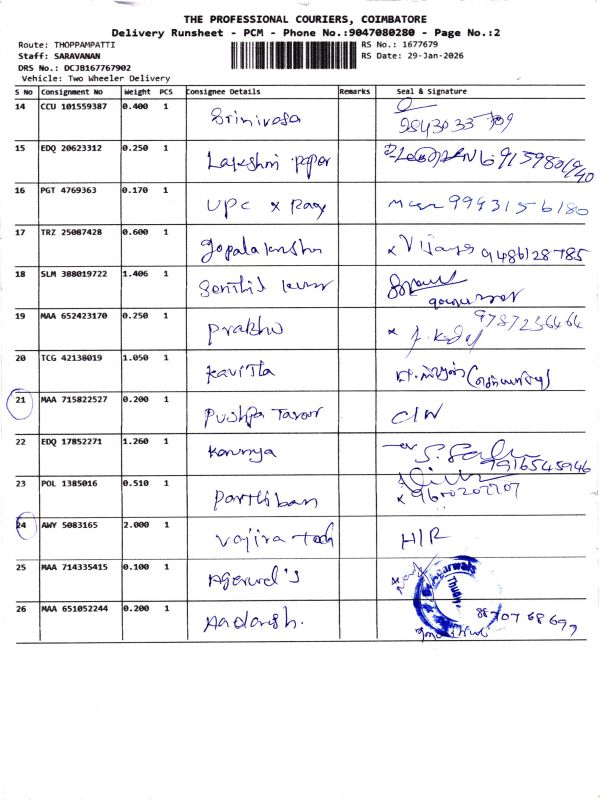 THE PROFESSIONAL COURIERS, COIMBATORE
Delivery Runsheet - PCM - Phone No.:9047080280 - Page No.:2
Route: THOPPAMPATTI RS No.: 1677679
Staff: SARAVANAN RS Date: 29-Jan-2026
DRS No.: DCJB167767902
Vehicle: Two Wheeler Delivery
S No Consignment No Weight PCS Consignee Details Remarks Seal & Signature
14 CCU 101559387 0.400 1 Srinivasa
15 EDQ 20623312 0.250 1 Lakshmi
16 PGT 4769363 0.170 1 UPC x 9943156180
17 TRZ 25087428 0.600 1 x Vijaya 9486128785
18 SLM 388019722 1.406 1
19 MAA 652423170 0.250 1 Prabhu x 9787256464
20 TCG 42138019 1.050 1 Kavitha
21 MAA 715822527 0.200 1 Pushpa C/N
22 EDQ 17852271 1.260 1 9916545946
23 POL 1385016 0.510 1 Parthiban x 9600202707
24 AWY 5083165 2.000 1 Vajira Tech H/R
25 MAA 714335415 0.100 1 Agarwal's
26 MAA 651052244 0.200 1 Aadarsh. 8870768699